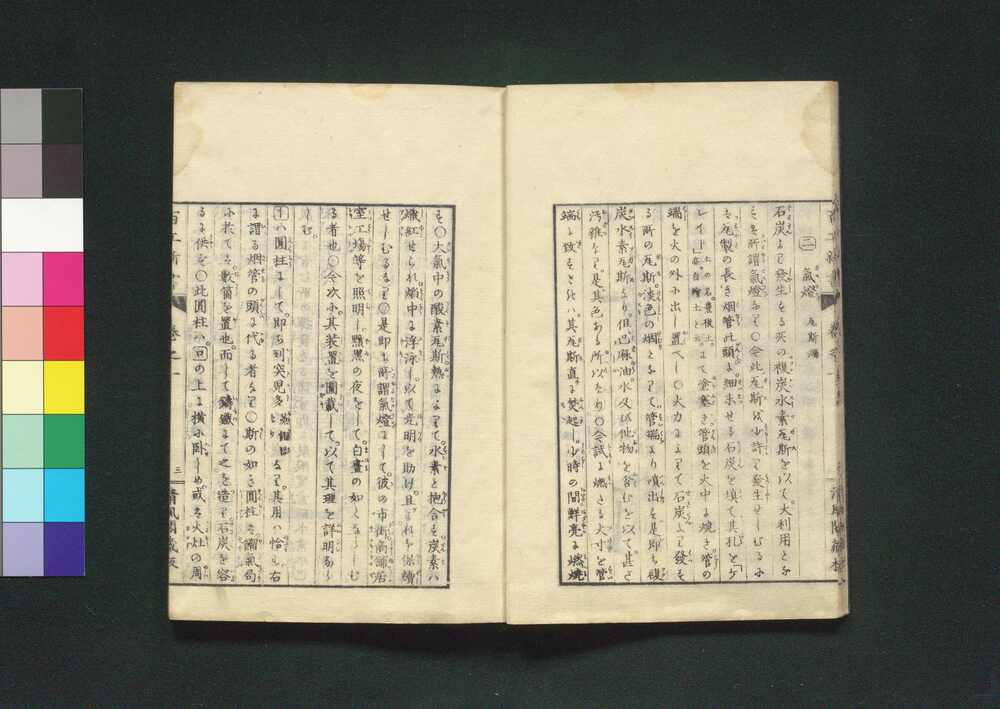 二 氣燈 瓦斯燈
石炭より發生する天の複炭水素瓦斯を以て大利用と
も所謂氣燈なり〇今此瓦斯を少許り發生せしむるに
を製の長き烟管此頭に細末せる石炭を填て其孔を「ケ
レイ」にて塗塞き管頭を火中に燒き管の
端を火の外に出し置べし〇火力によりて石炭より發す
る所の瓦斯淡色の烟となりて管端より噴出す是即ち複
炭水素瓦斯なり但已麻油水及ひ他物を含むを以て甚た
汚雜なり是其色ある所以なり〇今試に燃る火寸を管
端に致すときハ其瓦斯直に焚起し少時の間鮮亮に燃燒
す〇大氣中の酸素瓦斯熱によりて水素と抱合す炭素ハ
熾紅せられ焔中に浮泳し以て光明を助け且これを保續
せしむるなり〇是即ち所謂氣燈にして彼の市街商舖居
室工場等を照明し黯黑の夜をして白晝の如くならしむ
る者也〇今次に其裝置を圖載して以て其理を詳明なら
しむ
十ハ圓柱にして即ち列突児多なり其用ハ恰も右
に謂る烟管の頭に代る者なり〇斯の如き圓柱を瀰氣局
に於てハ數箇を置也而して鑄鐵にて之を造り石炭を容
るに供を〇此圓柱ハ回の上に横に臥しめ或ハ火灶の周
三